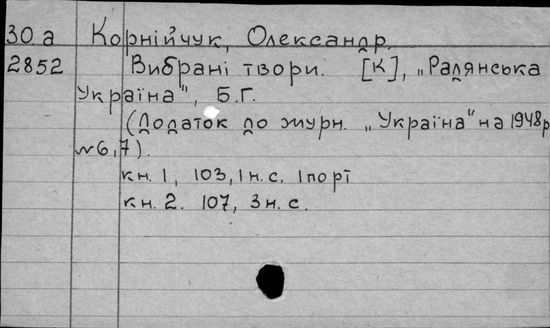 30.а Корнійчук, Олександр.
2852 Вибрані твори. [К], „Радянська
Україна", Б.Г.
(Додаток до журн. „Україна" на 1948р
№6,7).
кн. 1, 103, 1 н. с. 1 порт
кн. 2. 107, 3 н. с.